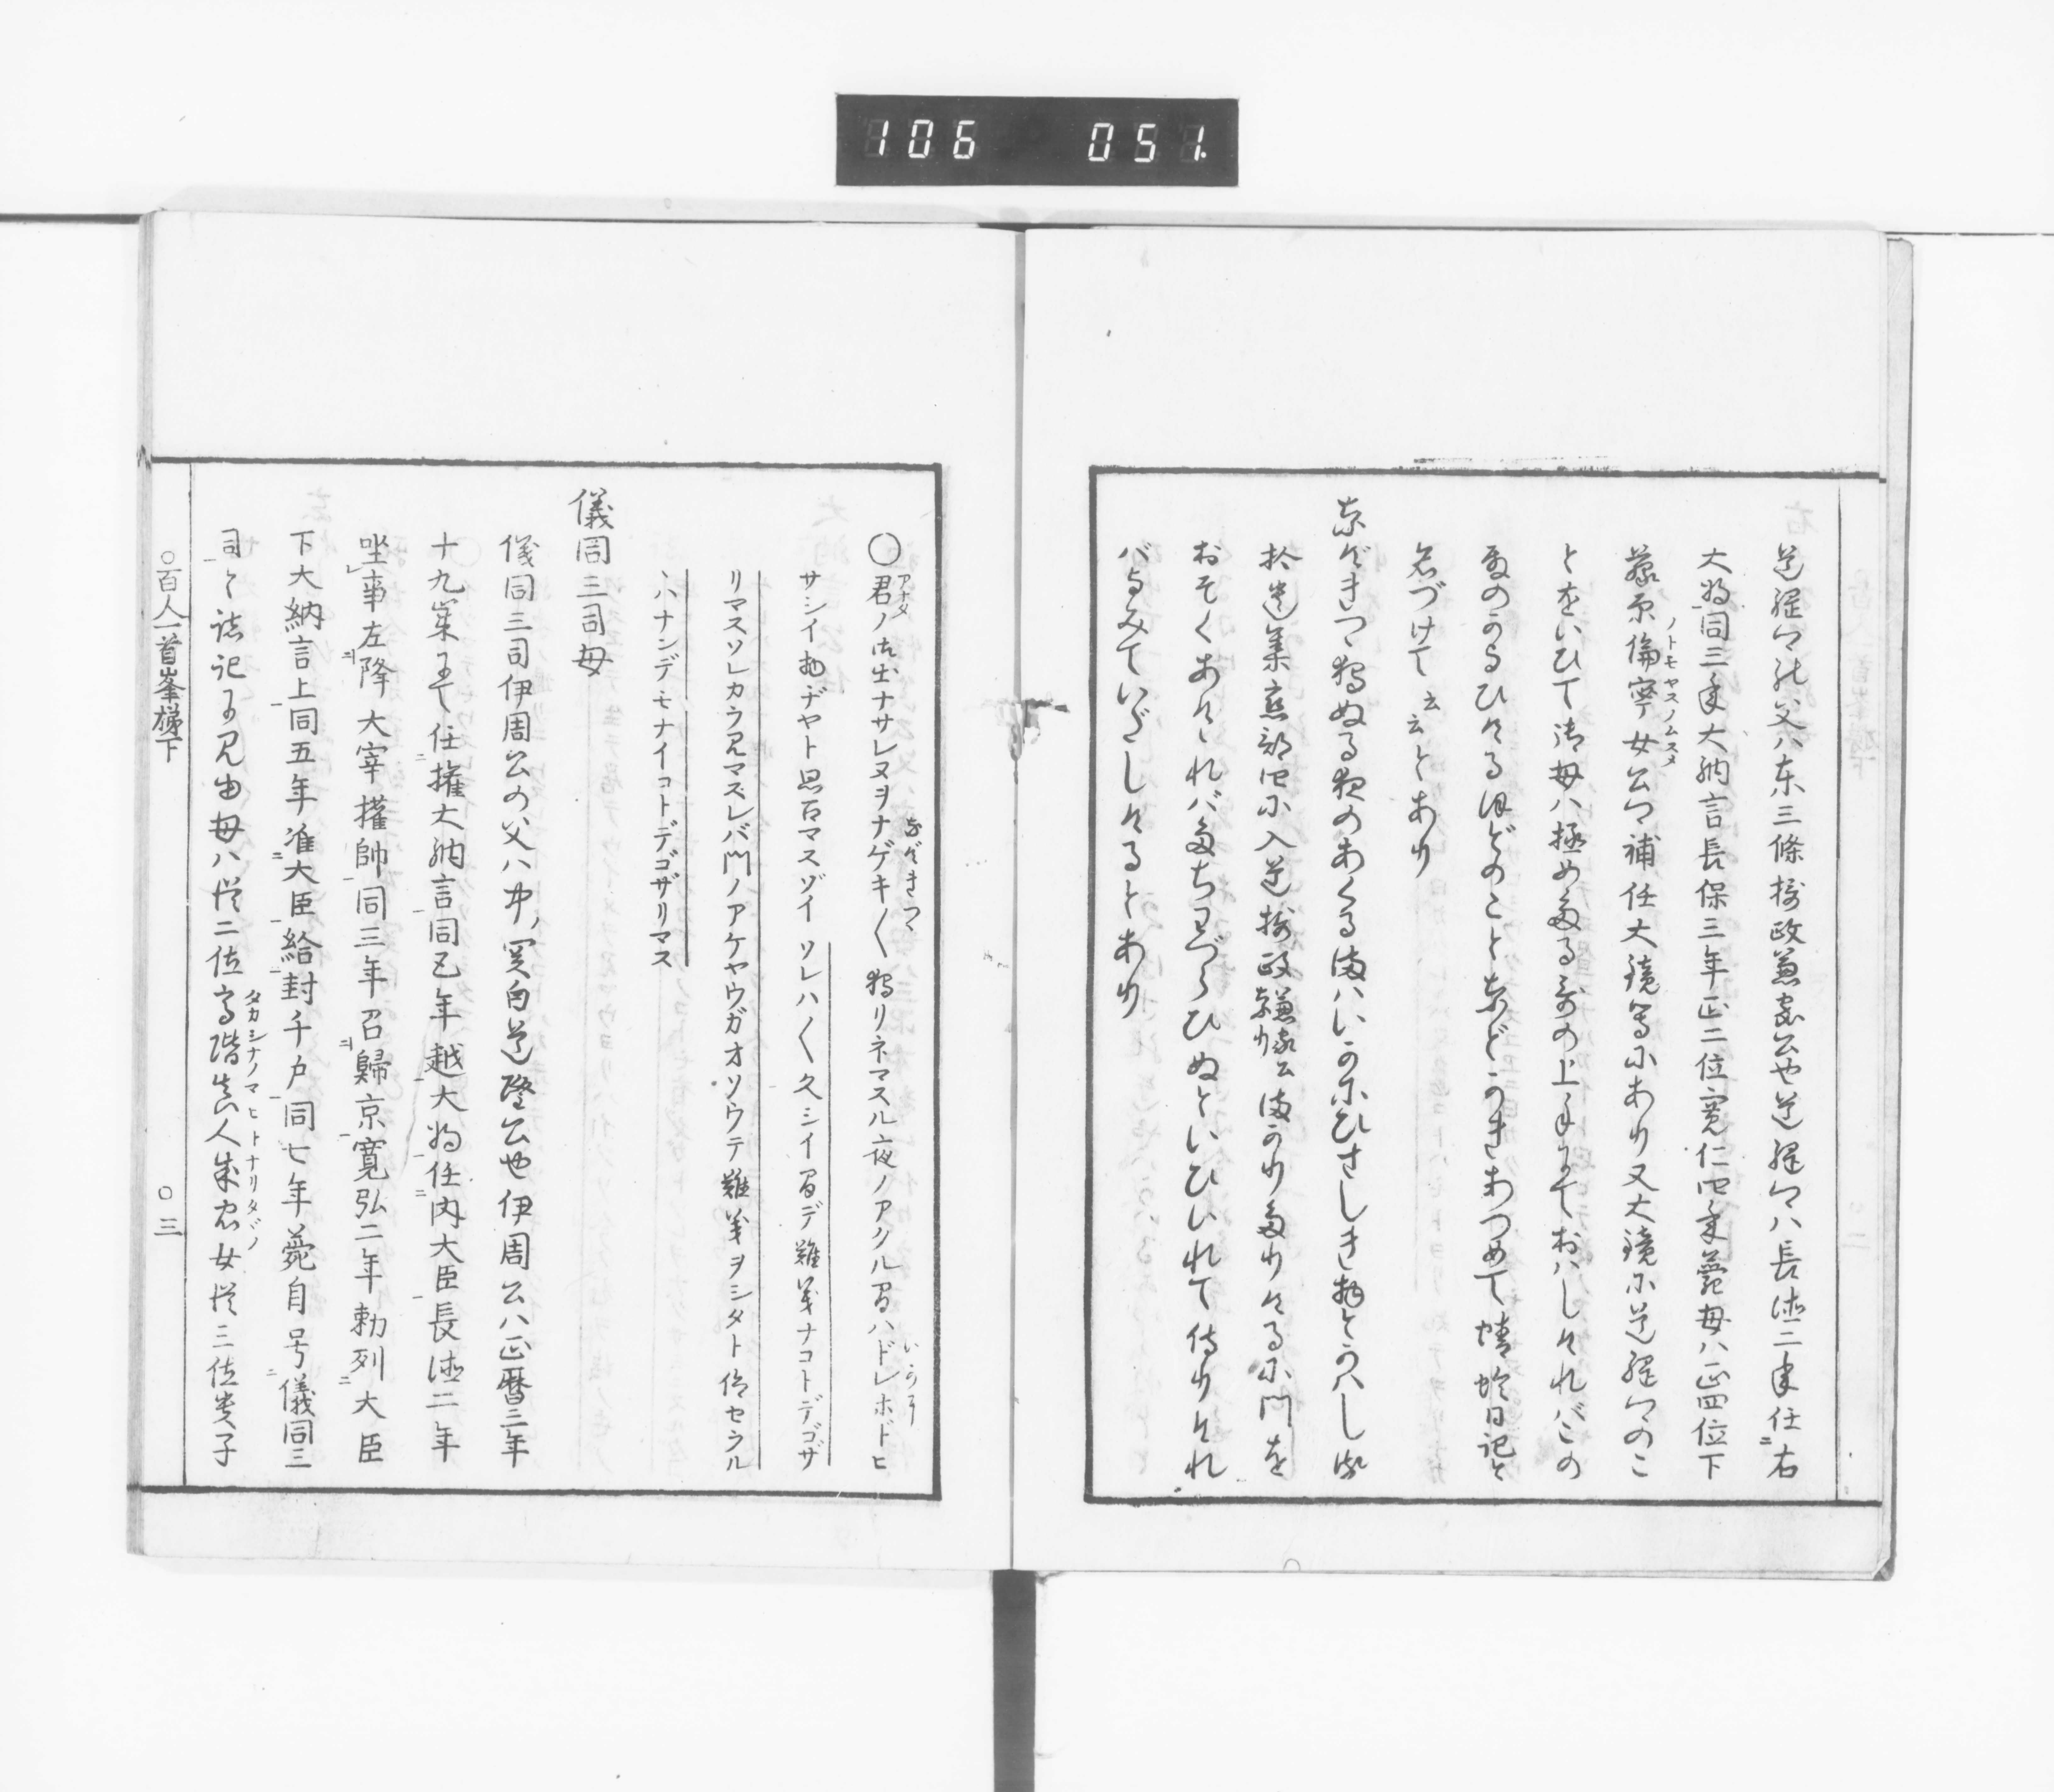 106 051.
道綱卿の父ハ東三條摂政兼家公也道綱卿ハ長徳二年任右
大将同三年大納言長保三年正二位寛仁四年薨母ハ正四位下
藤原倫寧女公卿補任大鏡等にあり又大鏡に道綱卿のこ
ノトモヤスノムスメ
とをいひて御母ハ極めたる哥の上手にておハしけれバこの
殿のかよひけるほどのことなどかきあつめて蜻蛉日記と
名づけて云云とあり
なげきつゝ獨ぬる夜のあくるまハいかにひさしき物とかハしる
拾遺集恋部四に入道摂政兼家公まかりたりけるに門を
おそくあけゝれバたちわづらひぬといひいれて侍りけれ
バよみていだしけるとあり
〇君ノ御出ナサレヌヲナゲキ〱獨リネマスル夜ノアクル間ハドレホドヒ
アナタ なげきつゝ いかに
サシイ物ヂヤト思召マスゾイソレハ〱久シイ間デ難義ナコトデゴザ
リマスソレカラ見マスレバ門ノアケヤウガオソウテ難義ヲシタト仰セラル
ヽハナンデモナイコトデゴザリマス
儀同三司母
儀同三司伊周公の父ハ中ノ関白道隆公也伊周公ハ正暦三年
十九歳にて任權大納言同五年越大将任内大臣長徳二年
坐事左降大宰權帥同三年召歸京寛弘二年勅列大臣
下大納言上同五年准大臣給封千戸同七年薨自号儀同三
司と諸記に見ゆ母ハ従二位高階真人成忠女従三位貴子
タカシナノマヒトナリタヾノ
〇百人一首峯梯下
〇三